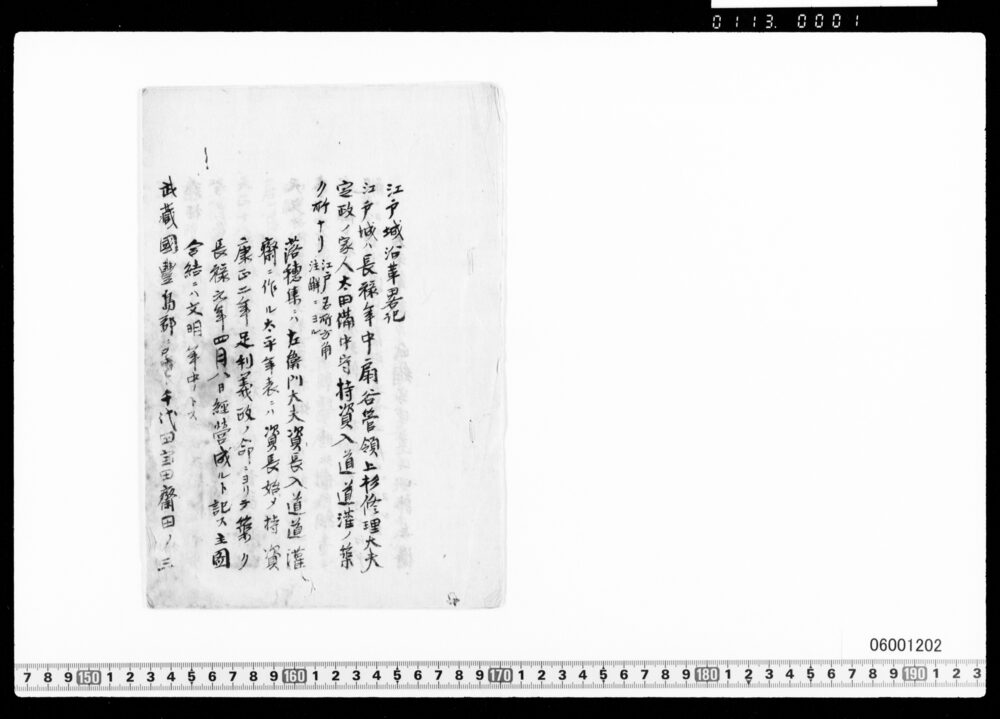 0113. 0001
江戸城沿革畧記
江戸城ハ長禄年中扇谷管領上杉修理大夫
定政ノ家人太田備中守持資入道道灌ノ築
ク所ナリ江戸名所方角
注解ニヨル
落穂集ハ左衛門大夫資長入道道灌
齋ニ作ル太平年表ニハ資長始メ持資
康正二年足利義政ノ命ニヨリテ築ク
長禄元年四月八日經營成ルト記ス主圖
合結ニハ文明年中トス
武藏國豊島郡 千代田宝田齋田ノ三
06001202
7 8 9 150 1 2 3 4 5 6 7 8 9 160 1 2 3 4 5 6 7 8 9 170 1 2 3 4 5 6 7 8 9 180 1 2 3 4 5 6 7 8 9 190 1 2 3